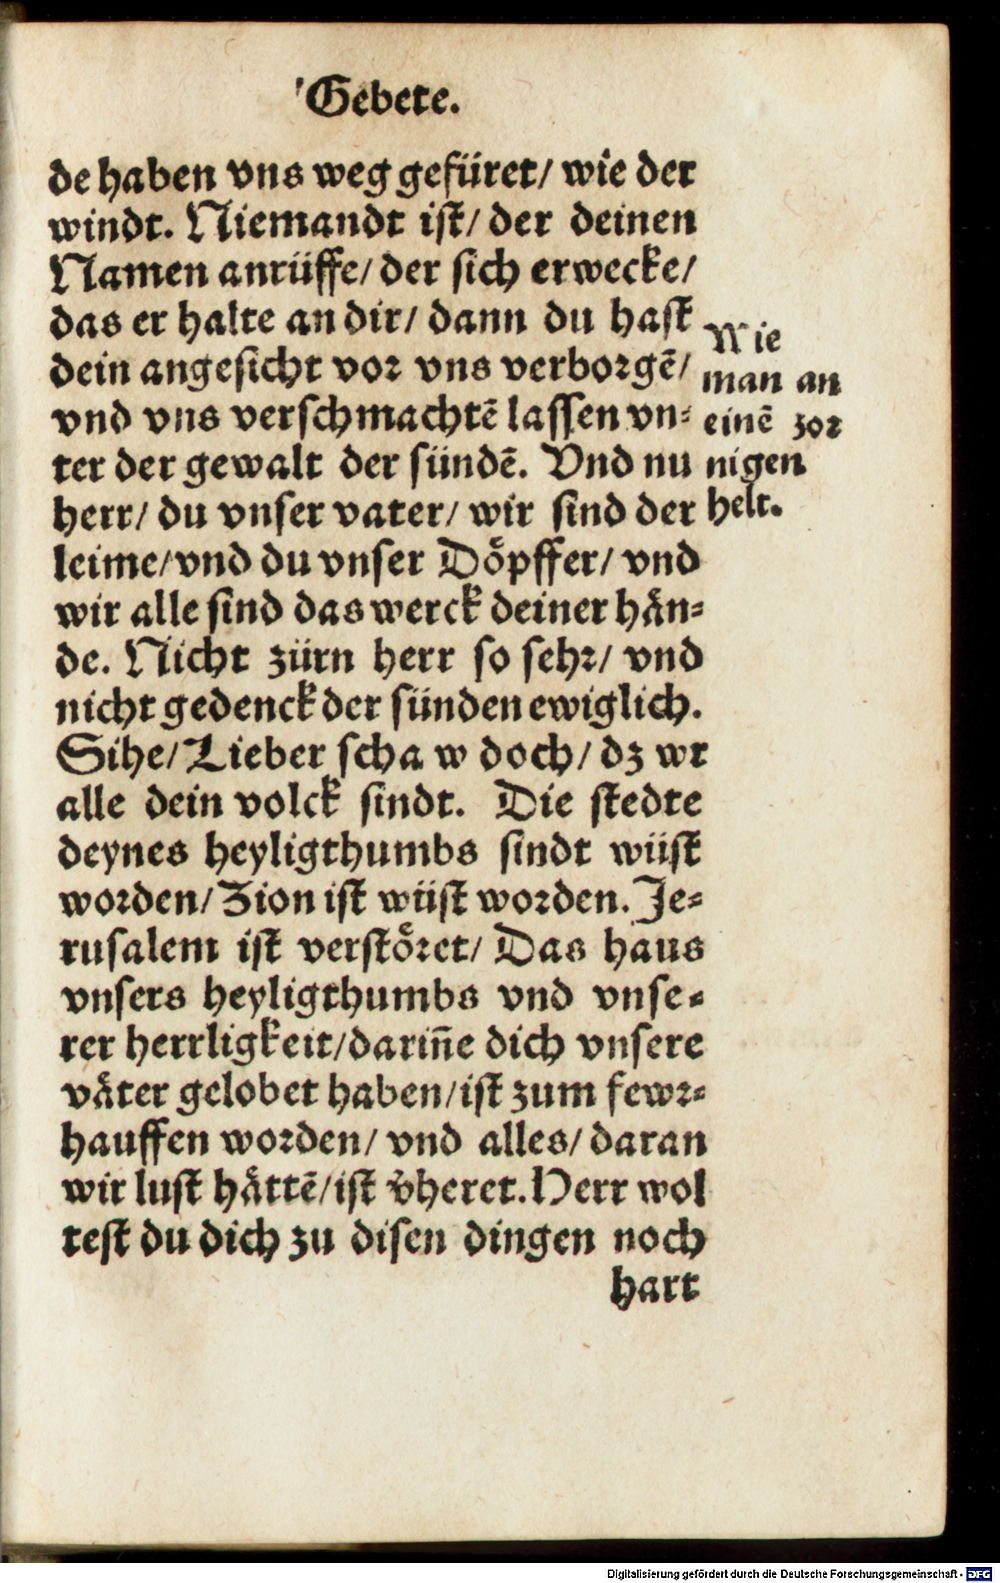 Gebete.
de haben vns weg gefüret/ wie der
windt. Niemandt ist/ der deinen
Namen anrüffe/ der sich erwecke/
das er halte an dir/ dann du hast
dein angesicht vor vns verborgē/
vnd vns verschmachtē lassen vn-
ter der gewalt der sündē. Vnd nu
herr/ du vnser vater/ wir sind der
leime/ vnd du vnser Döpffer/ vnd
wir alle sind das werck deiner hän-
de. Nicht zürn herr so sehr/ vnd
nicht gedenck der sünden ewiglich.
Sihe/ Lieber scha w doch/ dz wr
alle dein volck sindt. Die stedte
deynes heyligthumbs sindt wüst
worden/ Zion ist wüst worden. Je-
rusalem ist verstöret/ Das haus
vnsers heyligthumbs vnd vnse-
rer herrligkeit/ dariñe dich vnsere
väter gelobet haben/ ist zum fewr-
hauffen worden/ vnd alles/ daran
wir lust hättē/ ist v̊heret. Herr wol
test du dich zu disen dingen noch
hart
Wie
man an
einē zor
nigen
helt.
Digitalisierung gefördert durch die Deutsche Forschungsgemeinschaft - DFG